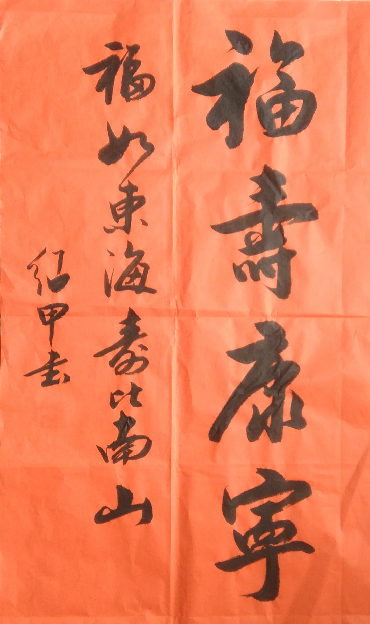 福壽康寧
福如東海壽比南山
紹甲書